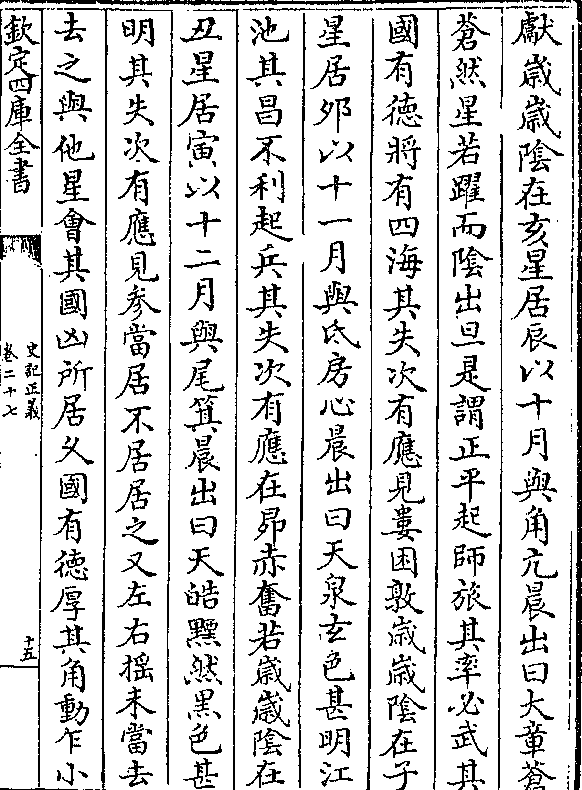 獻歲歲陰在亥星居辰以十月與角亢晨出曰大章蒼
蒼然星若躍而陰出旦是謂正平起師旅其率必武其
國有德將有四海其失次有應見婁困敦歲歲陰在子
星居夘以十一月與氐房心晨出曰天泉玄色甚明江
池其昌不利起兵其失次有應在昴赤奮若歲歲陰在
丑星居寅以十二月與尾箕晨出曰天皓黫然黑色甚
明其失次有應見參當居不居居之又左右搖未當去
去之與他星會其國凶所居久國有德厚其角動乍小
欽定四庫全書
史記正義
卷二十七
十五